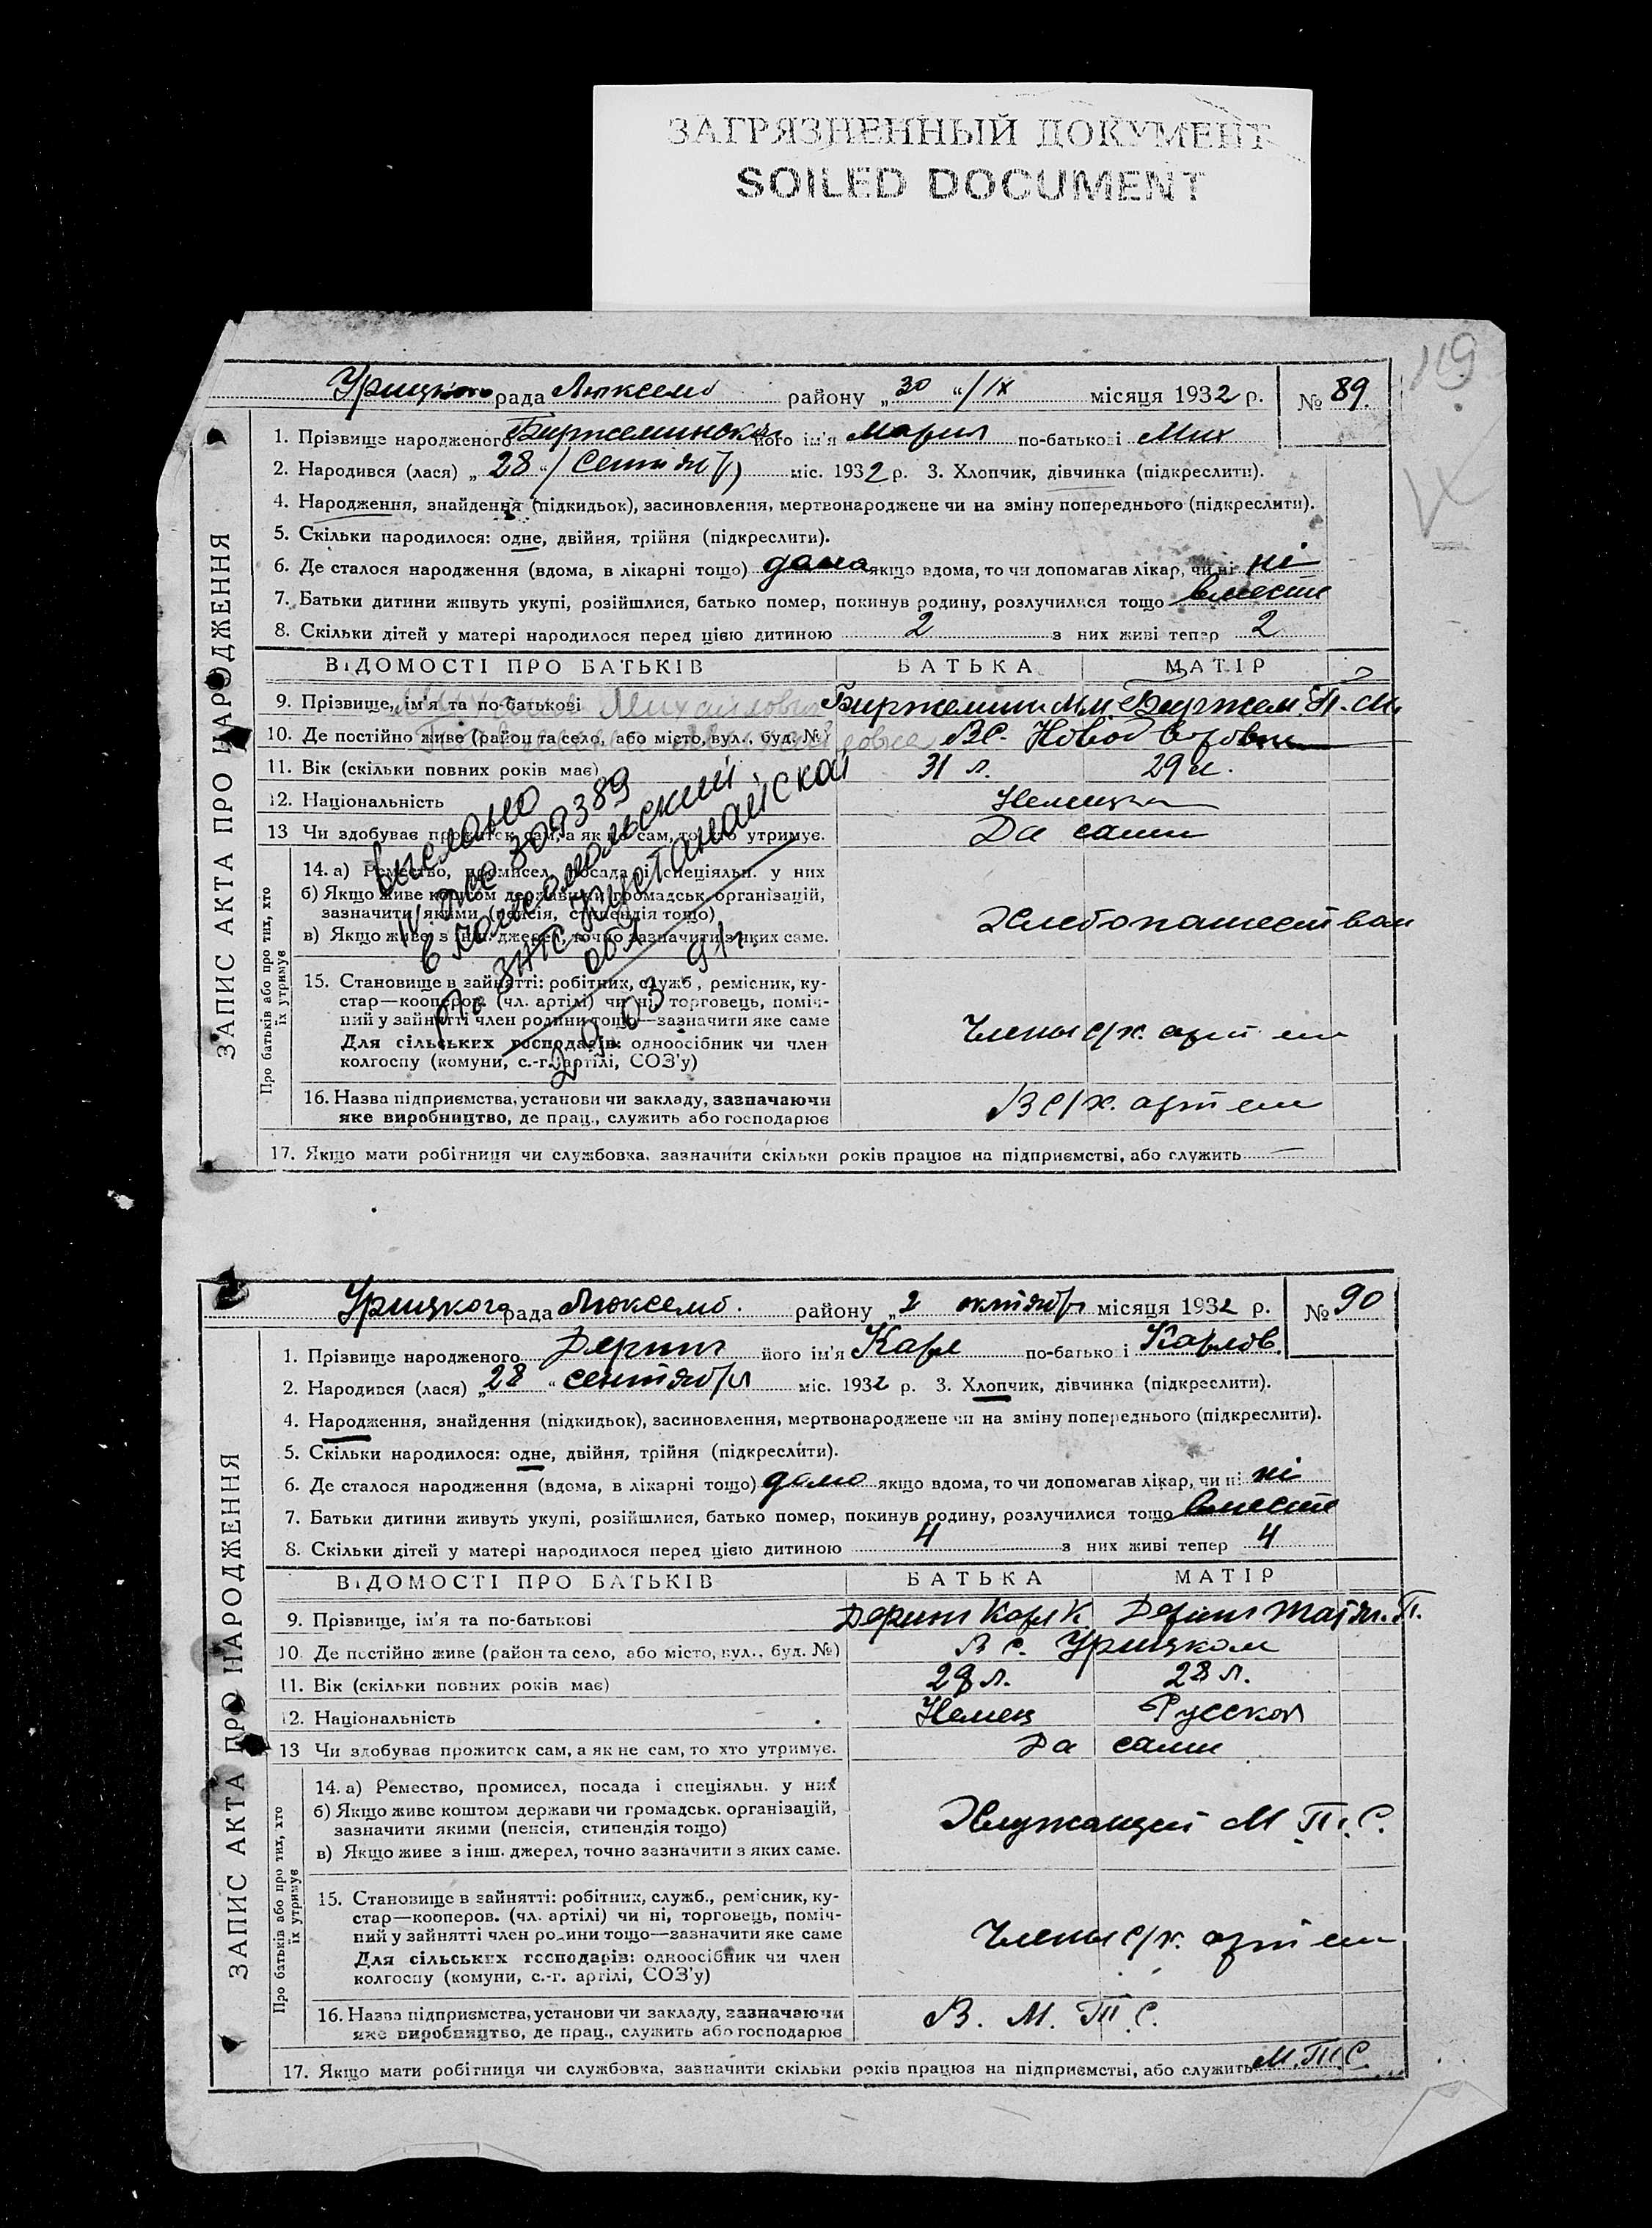 ЗАГРЯЗНЕННЫЙ ДОКУМЕНТ
SOILED DOCUMENT
119
Урицкого рада Люксемб району „30“/IX місяця 1932 р. № 89.
ЗАПИС АКТА ПРО НАРОДЖЕННЯ
1. Прізвище народженого його ім'я Мария по-батькові Мих
2. Народився (лася) „28“/Сентябр міс. 1932 р. 3. Хлопчик, дівчинка (підкреслити).
4. Народження, знайдення (підкидьок), засиновлення, мертвонароджене чи на зміну попереднього (підкреслити).
5. Скільки народилося: одне, двійня, трійня (підкреслити).
6. Де сталося народження (вдома, в лікарні тощо) дома якщо вдома, то чи допомагав лікар, чи ні ні
7. Батьки дитини живуть укупі, розійшлися, батько помер, покинув родину, розлучилися тощо вместе
8. Скільки дітей у матері народилося перед цією дитиною 2 з них живі тепер 2
ВІДОМОСТІ ПРО БАТЬКІВ БАТЬКА МАТІР
9. Прізвище, ім'я та по-батькові Михаил Михайлович
10. Де постійно живе (район та село, або місто, вул., буд. №) В С.
11. Вік (скільки повних років має) 31 л. 29 л.
12. Національність Немецка
13 Чи здобуває прожиток сам, а як не сам, то хто утримує. Да сами
Про батьків або про тих, хто їх утримує
14. а) Ремество, промисел, посада і спеціяльн. у них
б) Якщо живе коштом держави чи громадськ. організацій,
зазначити якими (пенсія, стипендія тощо)
в) Якщо живе з інш. джерел, точно зазначити з яких саме.
Хлебопашеством
15. Становище в зайнятті: робітник, служб., ремісник, ку-
стар—кооперов. (чл. артілі) чи ні, торговець, поміч-
ний у зайнятті член родини тощо—зазначити яке саме
Для сільських господарів: одноосібник чи член
колгоспу (комуни, с.-г. артілі, СОЗ'у)
Члены с/х. артели
16. Назва підприємства, установи чи закладу, зазначаючи
яке виробництво, де прац., служить або господарює
В с/х. артели
17. Якщо мати робітниця чи службовка, зазначити скільки років працює на підприємстві, або служить —
выслано
309389
в комсомольский
р. ЗАГС Кустанайской
обл
29 03 91г.
Урицкого рада Люксемб. району „2 октября місяця 1932 р. № 90
ЗАПИС АКТА ПРО НАРОДЖЕННЯ
1. Прізвище народженого Деринг його ім'я Карл по-батькові Карлов.
2. Народився (лася) „28“ сентября міс. 1932 р. 3. Хлопчик, дівчинка (підкреслити).
4. Народження, знайдення (підкидьок), засиновлення, мертвонароджене чи на зміну попереднього (підкреслити).
5. Скільки народилося: одне, двійня, трійня (підкреслити).
6. Де сталося народження (вдома, в лікарні тощо) дома якщо вдома, то чи допомагав лікар, чи ні ні
7. Батьки дитини живуть укупі, розійшлися, батько помер, покинув родину, розлучилися тощо вместе
8. Скільки дітей у матері народилося перед цією дитиною 4 з них живі тепер 4
ВІДОМОСТІ ПРО БАТЬКІВ БАТЬКА МАТІР
9. Прізвище, ім'я та по-батькові Деринг Карл К. Деринг
10. Де постійно живе (район та село, або місто, вул., буд. №) В С. Урицком
11. Вік (скільки повних років має) 28 л. 28 л.
12. Національність Немец Русская
13 Чи здобуває прожиток сам, а як не сам, то хто утримує. Да сами
Про батьків або про тих, хто їх утримує
14. а) Ремество, промисел, посада і спеціяльн. у них
б) Якщо живе коштом держави чи громадськ. організацій,
зазначити якими (пенсія, стипендія тощо)
в) Якщо живе з інш. джерел, точно зазначити з яких саме.
Служащий М.Т.С.
15. Становище в зайнятті: робітник, служб., ремісник, ку-
стар—кооперов. (чл. артілі) чи ні, торговець, поміч-
ний у зайнятті член родини тощо—зазначити яке саме
Для сільських господарів: одноосібник чи член
колгоспу (комуни, с.-г. артілі, СОЗ'у)
Члены с/х. артели
16. Назва підприємства, установи чи закладу, зазначаючи
яке виробництво, де прац., служить або господарює
В. М. Т. С.
17. Якщо мати робітниця чи службовка, зазначити скільки років працює на підприємстві, або служить М.Т.С.